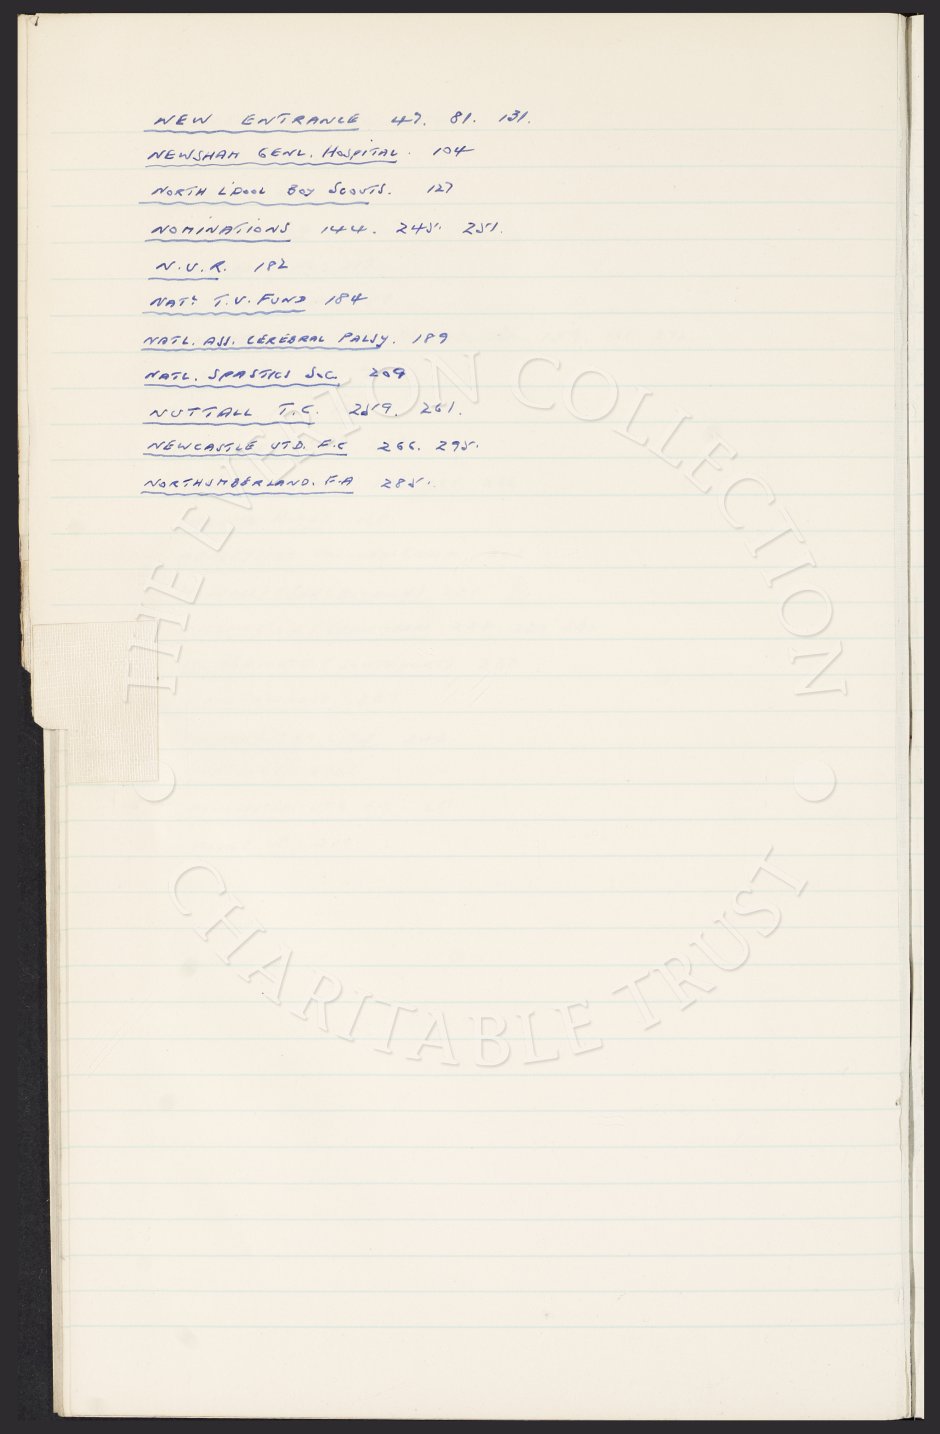 NEW ENTRANCE 47. 81. 131.
NEWSHAM GENL. HOSPITAL. 104
NORTH L'POOL BOY SCOUTS. 127
NOMINATIONS 144. 245. 251.
N.U.R. 182
NATL T.V. FUND 184
NATL. ASS. CEREBRAL PALSY. 189
NATL. SPASTICS SOC. 209
NUTTALL T.C. 259. 261.
NEWCASTLE UTD. F.C 266. 295.
NORTHUMBERLAND. F.A 285.
THE EVERTON COLLECTION
CHARITABLE TRUST